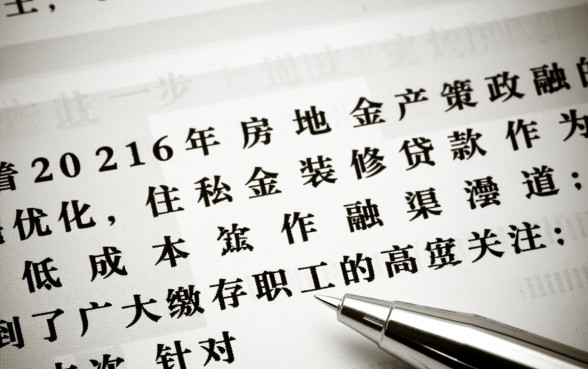 20216年房地金产策政融
优化，住私金装修贷款作为
低成本作融渠道；
到了广大缴存职工的高关注；
次 针对